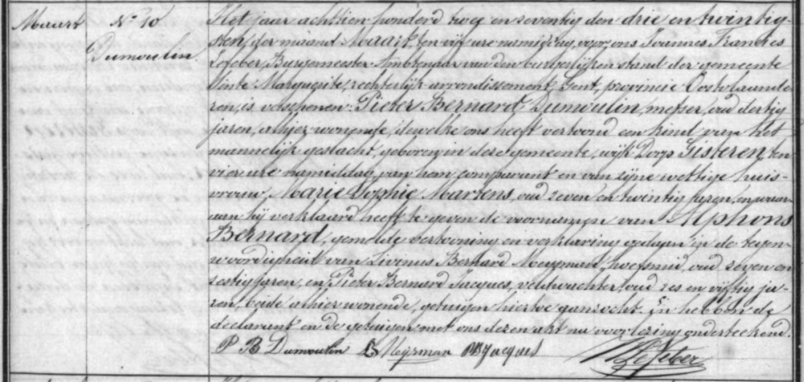 Maart
N° 10
Dumoulin
Het jaar achttien honderd twee en seventig den drie en twintig-
sten der maand Maart ten vijf ure namiddag, voor ons Joannes Francies
Lefeber, Burgemeester Ambtenaar van den burgerlijken stand der gemeente
Sinte Margueite, rechterlijk arrondissement Gent, provincie Oostvlaande-
ren, is verschenen: Pieter Bernard Dumoulin, metser, oud dertig
jaren, alhier wonende, dewelke ons heeft vertoond een kind van het
mannelijk geslacht, geboren in deze gemeente, wijk Dorp Gisteren, ten
vier ure namiddag, van hem comparant en van zijne wettige huis-
vrouw Marie Sophie Martens, oud zeven en twintig jaren, en waar-
aan hij verklaard heeft te geven de voornamen van Alphons
Bernard, gemelde vertooning en verklaring gedaan in de tegen-
woordigheid van Livinus Bernard Meysman, hoefsmid, oud zeven en
zestig jaren, en Pieter Bernard Jacques, veldwachter, oud zes en vijftig ja-
ren, beide alhier wonende, getuigen hiertoe aanzocht. En hebben de
declarant en de getuigen met ons dezen akt na voorlezing onderteekend.
P B Dumoulin B Meysman Jacques
Lefeber